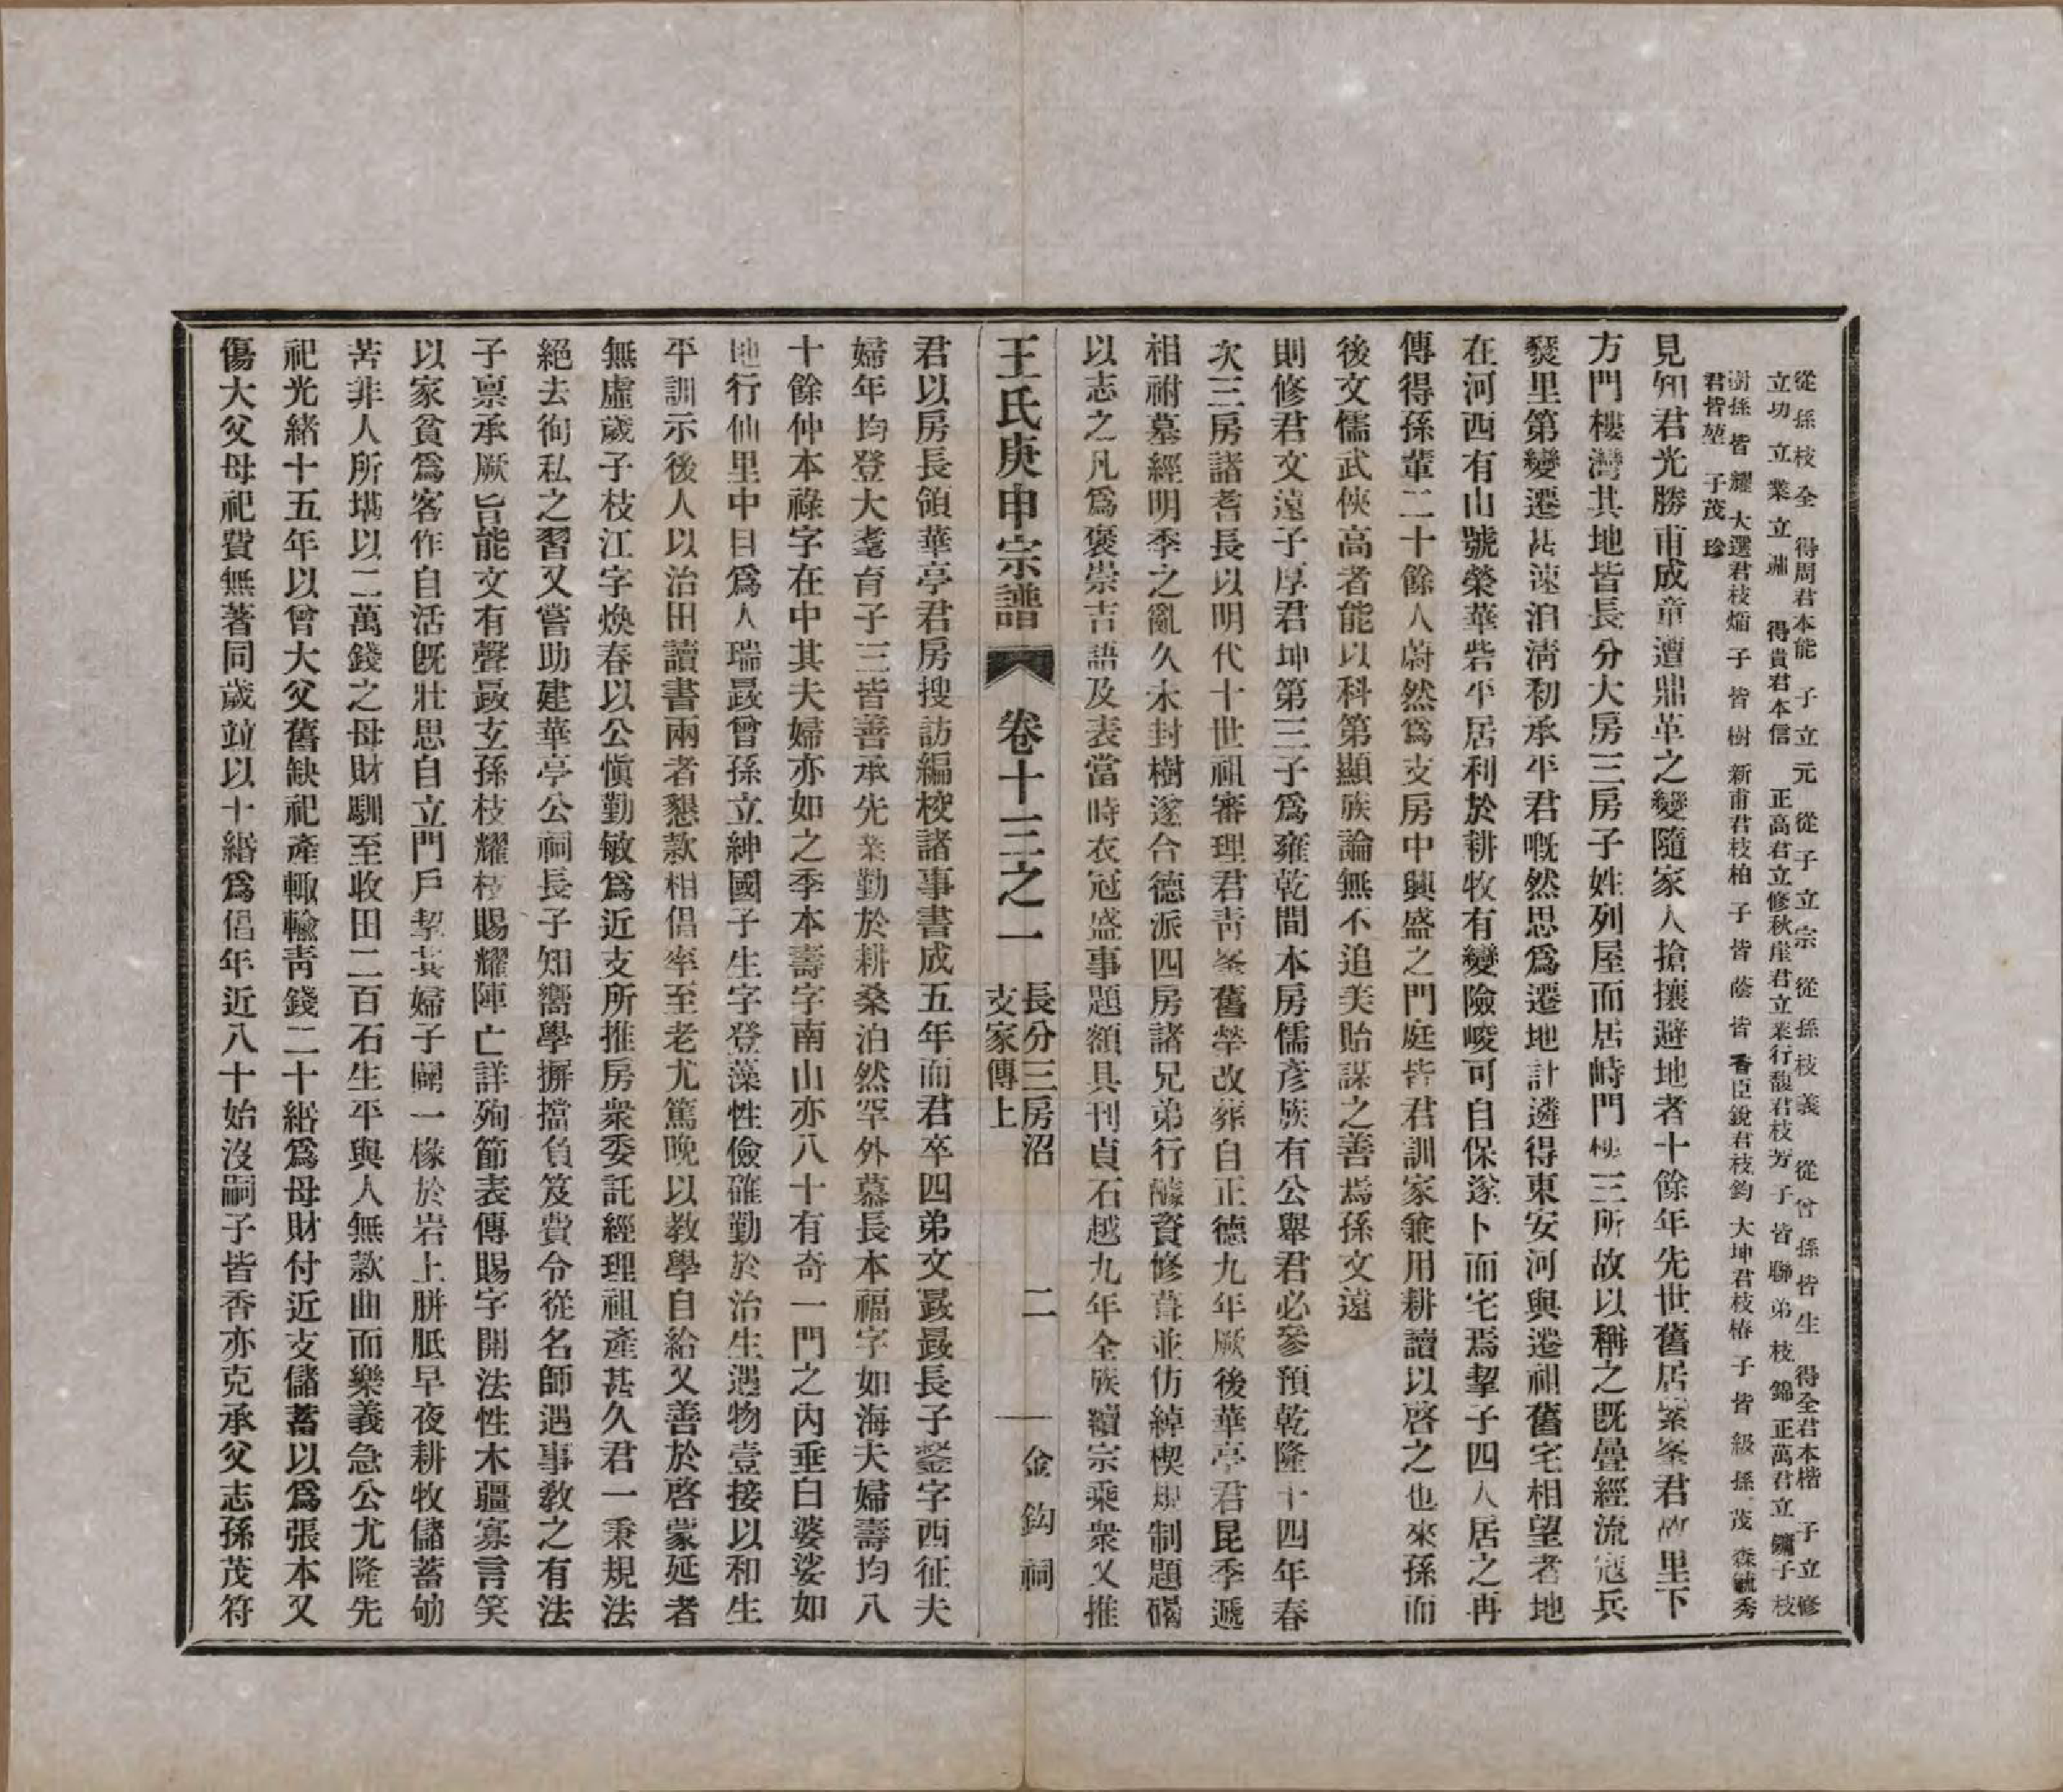 從孫枝全 得周君本能 子立元 從子立宗 從孫枝義 從曾孫皆生 得全君本楷 子立修
立功 立業 立 得貴君本信 正高君立修秋崖君立業行馥君枝芳子皆聯弟枝錦 正萬君立鏞子枝
樹孫皆耀 大選君枝 子皆樹 新甫君枝柏 子皆蔭皆香臣銳君枝鈞 大坤君枝椿 子皆級孫茂森毓秀
君皆堃 子茂珍
見知君光勝甫成童遭鼎革之變隨家人搶攘避地者十餘年先世舊居紫峯君故里下
方門樓灣其地皆長分大房三房子姓列屋而居峙門樓三所故以稱之既疊經流寇兵
燹里第變遷甚速洎淸初承平君嘅然思爲遷地計遴得東安河與遷祖舊宅相望者地
在河西有山號榮華砦平居利於耕牧有變險峻可自保遂卜而宅焉挈子四人居之再
傳得孫輩二十餘人蔚然爲支房中興盛之門庭皆君訓家兼用耕讀以啓之也來孫而
後文儒武俠高者能以科第顯族論無不追美貽謀之善焉孫文遠
則修君文遠子厚君坤第三子爲雍乾間本房儒彥族有公舉君必參預乾隆十四年春
次三房諸耆長以明代十世祖審理君靑峯舊塋改葬自正德九年厥後華亭君昆季遞
相祔墓經明季之亂久未封樹遂合德派四房諸兄弟行醵資修葺並仿綽楔規制題碣
以志之凡爲褒崇吉語及表當時衣冠盛事題額具刊貞石越九年全族續宗乘衆又推
王氏庚申宗譜 卷十三之一 長分三房沼
支家傳上 二 金鈎祠
君以房長領華亭君房搜訪編校諸事書成五年而君卒四弟文最最長子鋆字西征夫
婦年均登大耄育子三皆善承先業勤於耕桑泊然罕外慕長本福字如海夫婦壽均八
十餘仲本祿字在中其夫婦亦如之季本壽字南山亦八十有奇一門之內垂白婆娑如
地行仙里中目爲人瑞最曾孫立紳國子生字登藻性儉確勤於治生遇物壹接以和生
平訓示後人以治田讀書兩者懇款相倡率至老尤篤晚以教學自給又善於啓蒙延者
無虛歲子枝江字煥春以公愼勤敏爲近支所推房衆委託經理祖產甚久君一秉規法
絕去徇私之習又嘗助建華亭公祠長子知嚮學摒擋負笈費令從名師遇事教之有法
子稟承厥旨能文有聲最玄孫枝耀枝賜耀陣亡詳殉節表傳賜字開法性木疆寡言笑
以家貧爲客作自活既壯思自立門戶挈其婦子闢一椽於岩上胼胝早夜耕牧儲蓄劬
苦非人所堪以二萬錢之母財馴至收田二百石生平與人無款曲而樂義急公尤隆先
祀光緒十五年以曾大父舊缺祀產輙輸靑錢二十緡爲母財付近支儲蓄以爲張本又
傷大父母祀費無著同歲竝以十緡爲倡年近八十始沒嗣子皆香亦克承父志孫茂符